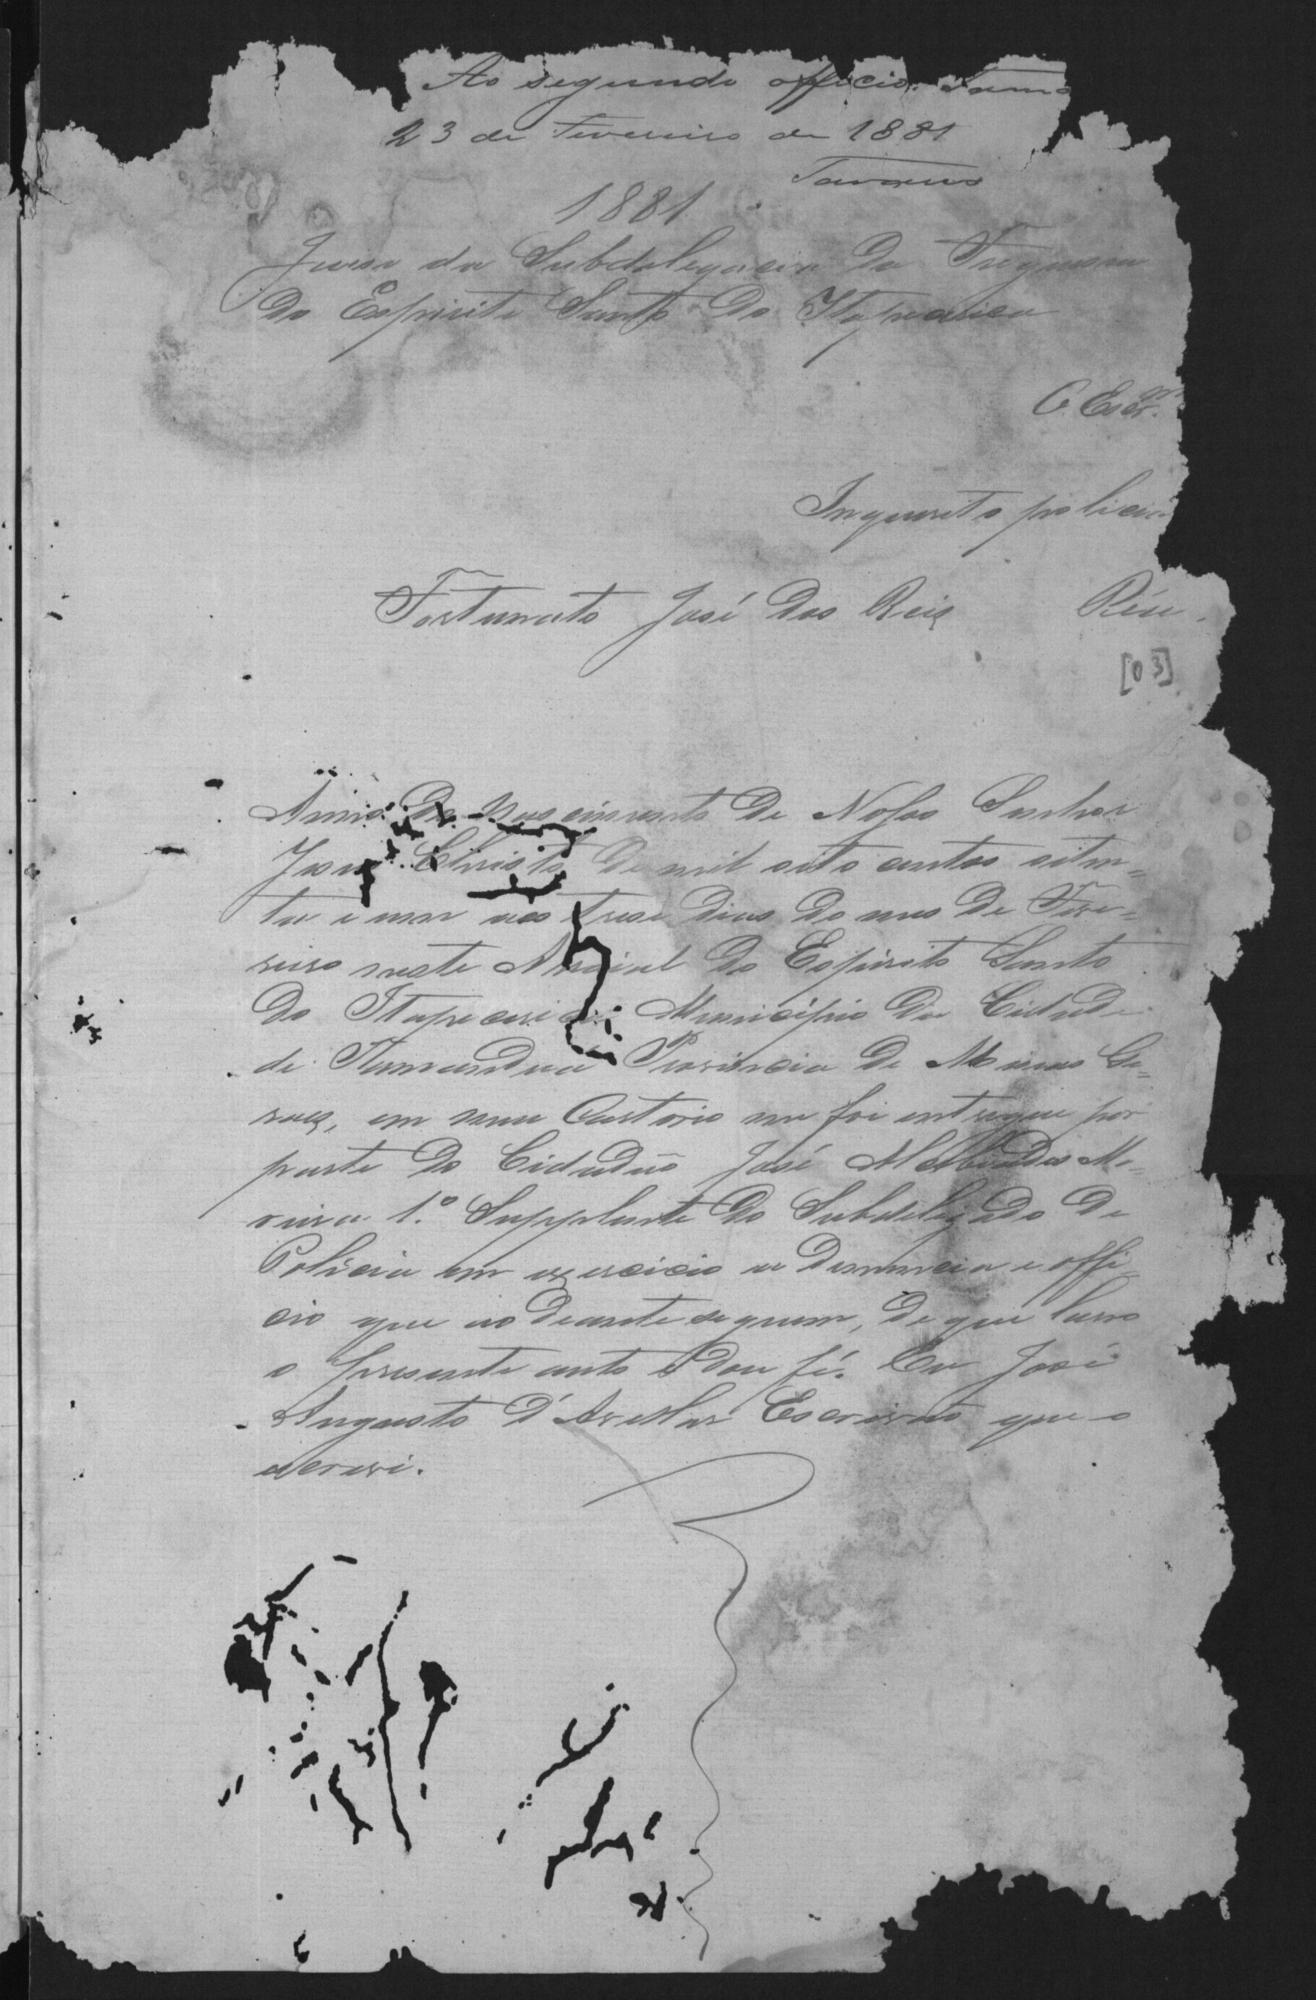 Ao segundo officio. Tama
23 de Fevereiro de 1881
Tavares
1881
Juiso da Subdelegacia da Freguesia
do Espirito Santo do Itapecerica
O Escr.am
Inquerito policia
Fortunato José dos Reis Réu
[03]
Anno do Nascimento de Nosso Senhor
Jesus Christo de mil oito centos oiten=
ta e um aos trese dias do mes de Feve=
reiro neste Arraial do Espirito Santo
do Itapecerica Municipio da Cidade
de Tamanduá Provincia de Minas Ge=
raes, em meu Cartorio me foi entregue por
parte do Cidadão José Mo=
reira 1.º Supplente do Subdelegado de
Policia em exercicio a denuncia e offi
cio que ao deante seguem, de que lavro
o presente auto e dou fé. Eu José
Augusto d'Avellar Escrivão que o
escrevi.